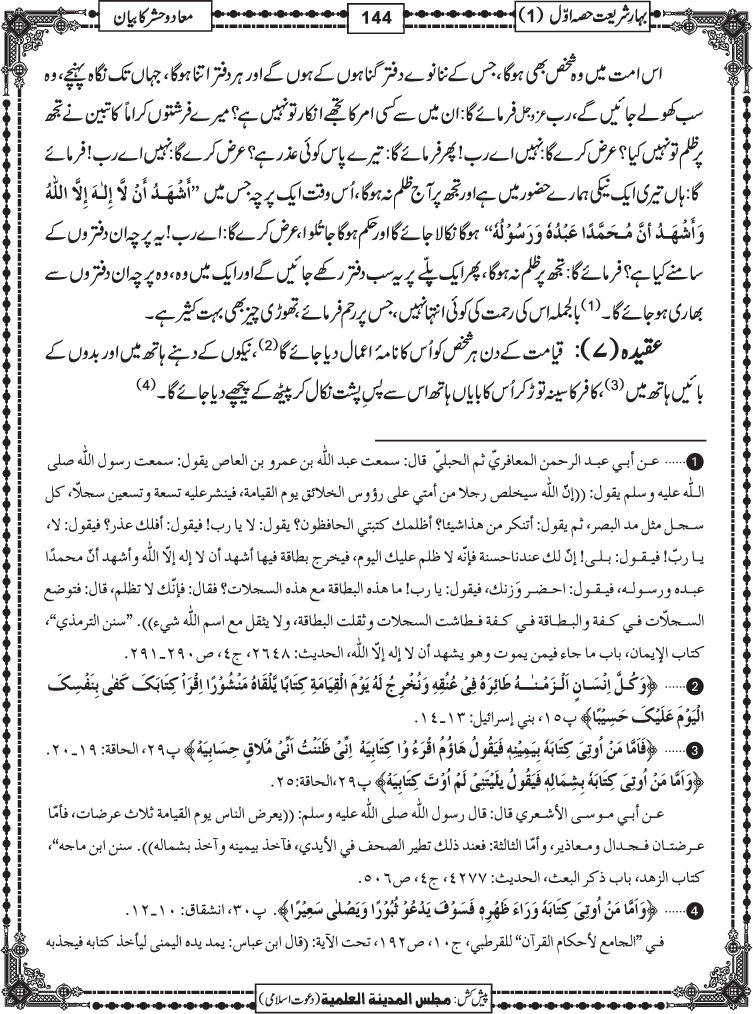 بہارِ شریعت حصہ اوّل (1)
144
معاد و حشر کا بیان
اس امت میں وہ شخص بھی ہوگا، جس کے ننانوے دفتر گناہوں کے ہوں گے اور ہر دفتر اتنا ہوگا، جہاں تک نگاہ پہنچے، وہ
سب کھولے جائیں گے، رب عزوجل فرمائے گا: ان میں سے کسی امر کا تجھے انکار تو نہیں ہے؟ میرے فرشتوں کراماً کاتبین نے تجھ
پر ظلم تو نہیں کیا؟ عرض کرے گا: نہیں اے رب! پھر فرمائے گا: تیرے پاس کوئی عذر ہے؟ عرض کرے گا: نہیں اے رب! فرمائے
گا: ہاں تیری ایک نیکی ہمارے حضور میں ہے اور تجھ پر آج ظلم نہ ہوگا، اُس وقت ایک پرچہ جس میں ”أَشْھَدُ أَنْ لَّا إِلٰـہَ إِلَّا اللّٰہُ
وَأَشْھَدُ أَنَّ مُحَمَّدًا عَبْدُہٗ وَرَسُوْلُہٗ“ ہوگا نکالا جائے گا اور حکم ہوگا جا تُلوا، عرض کرے گا: اے رب! یہ پرچہ ان دفتروں کے
سامنے کیا ہے؟ فرمائے گا: تجھ پر ظلم نہ ہوگا، پھر ایک پلّے پر یہ سب دفتر رکھے جائیں گے اور ایک میں وہ، وہ پرچہ ان دفتروں سے
بھاری ہو جائے گا۔ (1) بالجملہ اس کی رحمت کی کوئی انتہا نہیں، جس پر رحم فرمائے، تھوڑی چیز بھی بہت کثیر ہے۔
عقیدہ (۷): قیامت کے دن ہر شخص کو اُس کا نامۂ اعمال دیا جائے گا (2)، نیکوں کے دہنے ہاتھ میں اور بدوں کے
بائیں ہاتھ میں (3)، کافر کا سینہ توڑ کر اُس کا بایاں ہاتھ اس سے پسِ پشت نکال کر پیٹھ کے پیچھے دیا جائے گا۔ (4)
1 ...... عن أبي عبد الرحمن المعافريّ ثم الحبليّ قال: سمعت عبد اللّٰه بن عمرو بن العاص يقول: سمعت رسول اللّٰه صلی
اللّٰه عليه وسلم يقول: ((إنّ اللّٰه سيخلص رجلا من أمتي على رؤوس الخلائق يوم القيامة، فينشر عليه تسعة وتسعين سجلّا، كل
سجل مثل مد البصر، ثم يقول: أتنكر من هذا شيئا؟ أظلمك كتبتي الحافظون؟ يقول: لا يا رب! فيقول: أفلك عذر؟ فيقول: لا،
يا ربّ! فيقول: بلى! إنّ لك عندنا حسنة فإنّه لا ظلم عليك اليوم، فيخرج بطاقة فيها أشهد أن لا إله إلّا اللّٰه وأشهد أنّ محمدا
عبده ورسوله، فيقول: احضر وَزنك، فيقول: يا رب! ما هذه البطاقة مع هذه السجلات؟ فقال: فإنّك لا تظلم، قال: فتوضع
السجلّات في كفة والبطاقة في كفة فطاشت السجلات وثقلت البطاقة، ولا يثقل مع اسم اللّٰه شيء)). ”سنن الترمذي“،
كتاب الإيمان، باب ما جاء فيمن يموت وهو يشهد أن لا إله إلّا اللّٰه، الحديث: ۲٦٤۸، ج٤، ص۲۹۰۔۲۹۱.
2 ...... ﴿وَکُلَّ اِنْسَانٍ اَلْزَمْنٰـہُ طَآئِرَہٗ فِیْ عُنُقِہٖ وَنُخْرِجُ لَہٗ یَوْمَ الْقِیَامَۃِ کِتَابًا یَّلْقَاہُ مَنْشُوْرًا اِقْرَأْ کِتَابَکَ کَفٰی بِنَفْسِکَ
الْیَوْمَ عَلَیْکَ حَسِیْبًا﴾ پ۱۵، بني إسرائيل: ۱۳۔۱٤.
3 ...... ﴿فَاَمَّا مَنْ اُوتِیَ کِتَابَہٗ بِیَمِیْنِہٖ فَیَقُولُ ھَاؤُمُ اقْرَءُ وْا کِتَابِیَہْ اِنِّیْ ظَنَنْتُ اَنِّیْ مُلَاقٍ حِسَابِیَہْ﴾ پ۲۹، الحاقة: ۱۹۔۲۰.
﴿وَاَمَّا مَنْ اُوتِیَ کِتَابَہٗ بِشِمَالِہٖ فَیَقُولُ یٰلَیْتَنِیْ لَمْ اُوْتَ کِتَابِیَہْ﴾ پ۲۹، الحاقة: ۲۵.
عن أبي موسى الأشعري قال: قال رسول اللّٰه صلى اللّٰه عليه وسلم: ((يعرض الناس يوم القيامة ثلاث عرضات، فأمّا
عرضتان فجدال ومعاذير، وأمّا الثالثة: فعند ذلك تطير الصحف في الأيدي، فآخذ بيمينه وآخذ بشماله)). سنن ابن ماجه“،
كتاب الزهد، باب ذكر البعث، الحديث: ٤۲۷۷، ج٤، ص۵۰٦.
4 ...... ﴿وَاَمَّا مَنْ اُوتِیَ کِتَابَہٗ وَرَاءَ ظَھْرِہٖ فَسَوْفَ یَدْعُوْ ثُبُوْرًا وَیَصْلٰی سَعِیْرًا﴾. پ۳۰، انشقاق: ۱۰۔۱۲.
في ”الجامع لأحكام القرآن“ للقرطبي، ج۱۰، ص۱۹۲، تحت الآية: (قال ابن عباس: يمد يده اليمنى ليأخذ كتابه فيجذبه
پیش کش: مجلس المدينة العلمية (دعوت اسلامی)